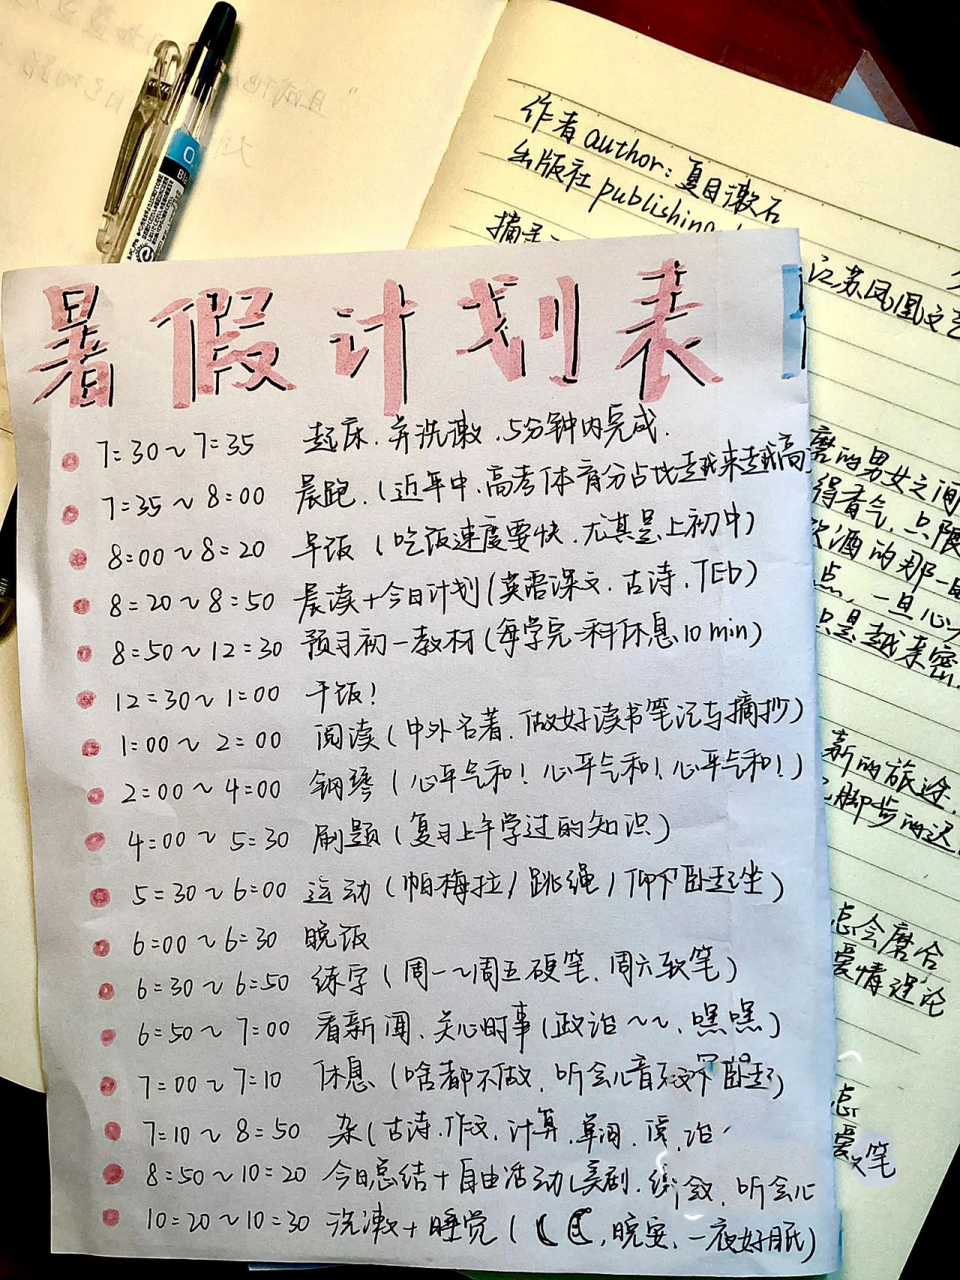 作者 author: 夏目漱石
出版社 publishing
江苏凤凰文艺
暑假计划表
7:30~7:35 起床.并洗漱.5分钟内完成.
7:35~8:00 晨跑.(近年中.高考体育分占比越来越高
8:00~8:20 早饭(吃饭速度要快.尤其是上初中)
8:20~8:50 晨读+今日计划(英语课文.古诗.TED)
8:50~12:30 预习初一教材(每学完一科休息10min)
12:30~1:00 干饭!
1:00~2:00 阅读(中外名著.做好读书笔记与摘抄)
2:00~4:00 钢琴(心平气和!心平气和!心平气和!)
4:00~5:30 刷题(复习上午学过的知识)
5:30~6:00 运动(帕梅拉/跳绳/仰卧起坐)
6:00~6:30 晚饭
6:30~6:50 练字(周一~周五硬笔.周六软笔)
6:50~7:00 看新闻.关心时事(政治~~.嘿嘿)
7:00~7:10 休息(啥都不做.听会儿音
7:10~8:50 杂(古诗.作文.计算.单词.
8:50~10:20 今日总结+自由活动(美剧. 听会儿
10:20~10:30 洗漱+睡觉( ,晚安.一夜好眠)
磨的男女之间
得香气.只限
饮酒的那一
点.一旦心
只是越来密.
新的旅途.
脚步的迟
怎会磨合
爱情理论
怎
爱 笔